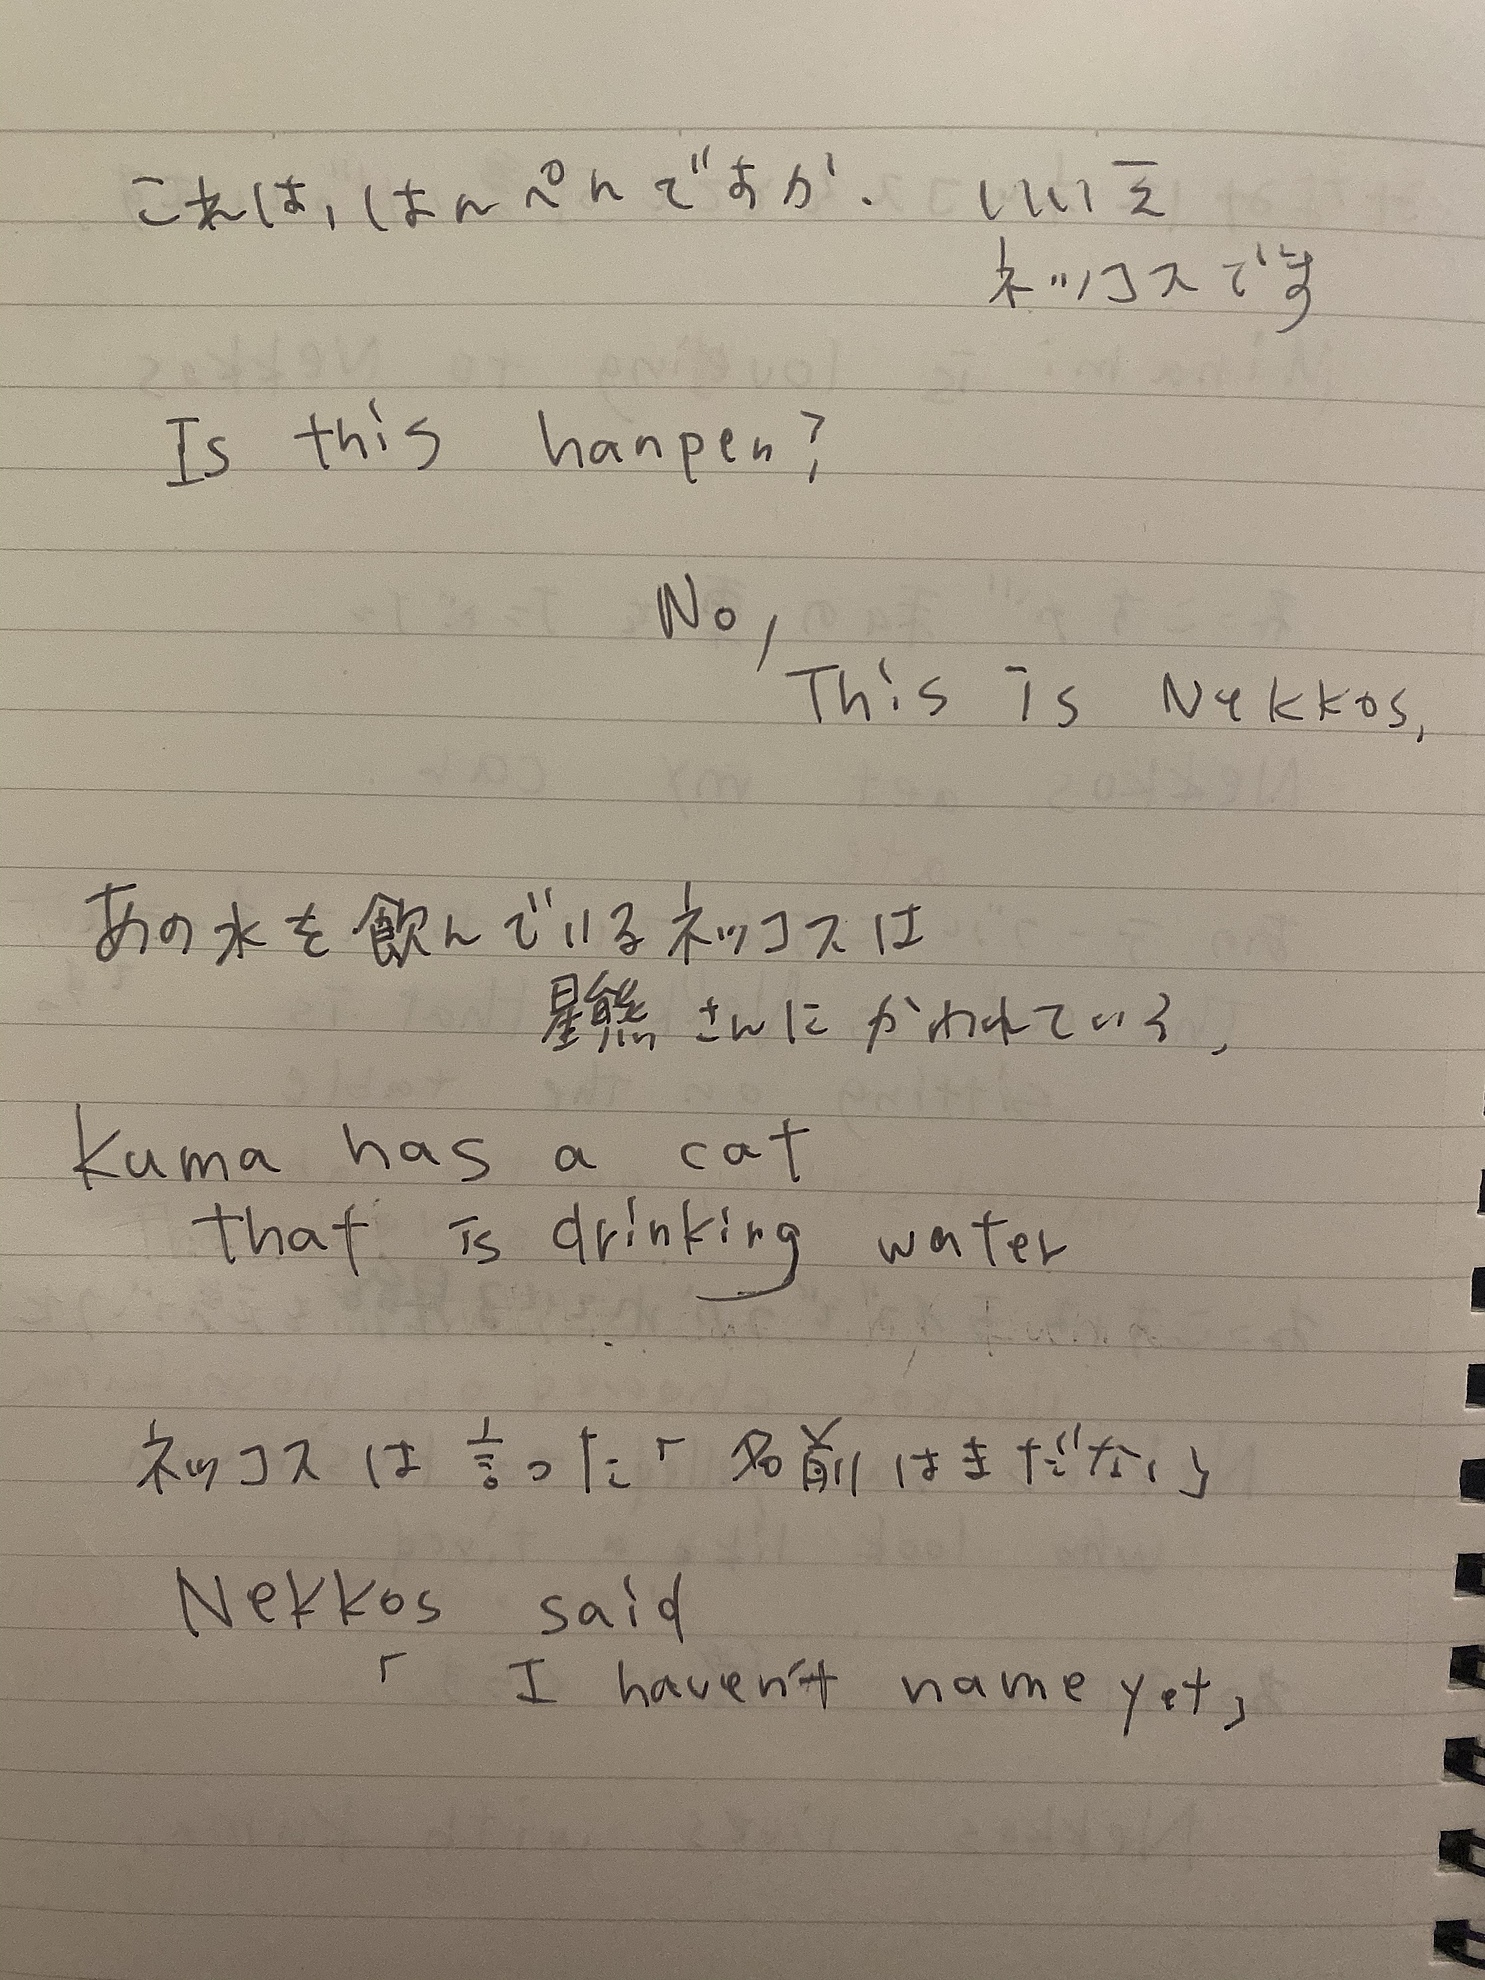 これは、はんぺんですか. いいえ
ネッコスです
Is this hanpen?
No,
This is Nekkos,
あの水を飲んでいるネッコスは
星熊さんにかわれている、
Kuma has a cat
that is drinking water
ネッコスは言った「名前はまだない」
Nekkos said
「 I haven't name yet」